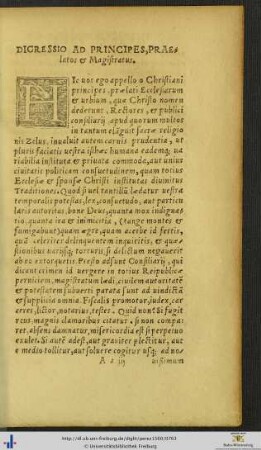 DIGRESSIO AD PRINCIPES, PRAE-
latos & Magistratus.
HIc uos ego appello o Christiani
principes, prælati Ecclesiarum
& urbium, que Christo nomen
dederunt, Rectores, & publici
consiliarij, apud quorum multos
in tantum elanguit sacræ religio
nis Zelus, inualuit autem carnis prudentia, ut
pluris faciatis uestra isthæc humana eademq; ua
riabilia instituta & priuata commoda, aut unius
ciuitatis politicam consuetudinem, quam totius
Ecclesiæ & sponsæ Christi institutas diuinitus
Traditiones. Quod si uel tantillũ lædatur uestra
temporalis potestas, lex, consuetudo, aut particu
laris autoritas, bone Deus, quanta mox indignatio
tio, quanta ira & inimicitia, (tange montes &
fumigabunt) quam ægre, quam acerbe id fertis,
quã celeriter delinquentem inquiritis, & quæ-
sionibus torturis, si delictum negauerit
ab eo extorquetis. Presto adsunt Consiliarij, qui
dicent crimen id uergere in totius Reipublicæ
perniciem, magistratum lædi, eiusdem autoritatẽ
& potestatem subuerti parata sunt ad uindictã
& supplicia omnia. Fiscalis promotor, iudex, car
ceres, lictor, notarius, testes. Quid non? Si fugit
reus, magnis clamoribus citatur, si non compa-
ret, absens damnatur, misericordia est si perpetuo
exulet. Si autẽ adest, aut grauiter plectitur, aut
e medio tollitur, aut soluere cogitur usq; ad no-
A 2 iij uissimum
http://dl.ub.uni-freiburg.de/diglit/